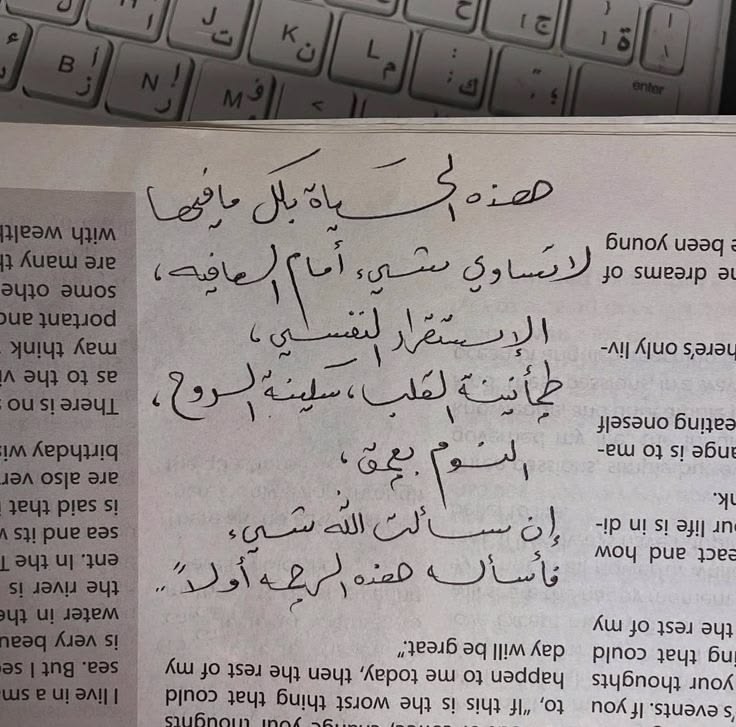 B
N
M
K
L
enter
هذه الحياة بكل مافيها
لاتساوي شيء أمام العافيه،
الإستقرار النفسي،
طمأنينة القلب، سكينة الروح،
النوم بعمق،
إن سألت الله شيء
فأسأله هذه الرحمه أولاً"..
's events. If you
your thoughts
that could
the rest of my
and how
life is in di-
is to ma-
oneself
here's only liv-
dreams of
been young
to, "If this is the worst thing that could
happen to me today, then the rest of my
day will be great."
I live in a
sea. But I
is very
water in the
the river is
ent. In the
sea and its
is said that
are also
birthday
There is no
as to the
may think
portant and
some
are many
with wealth